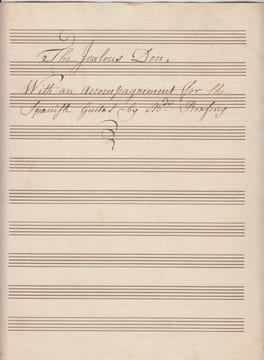 The Jealous Don.
With an accompagnement for the
Spanish Guitar by